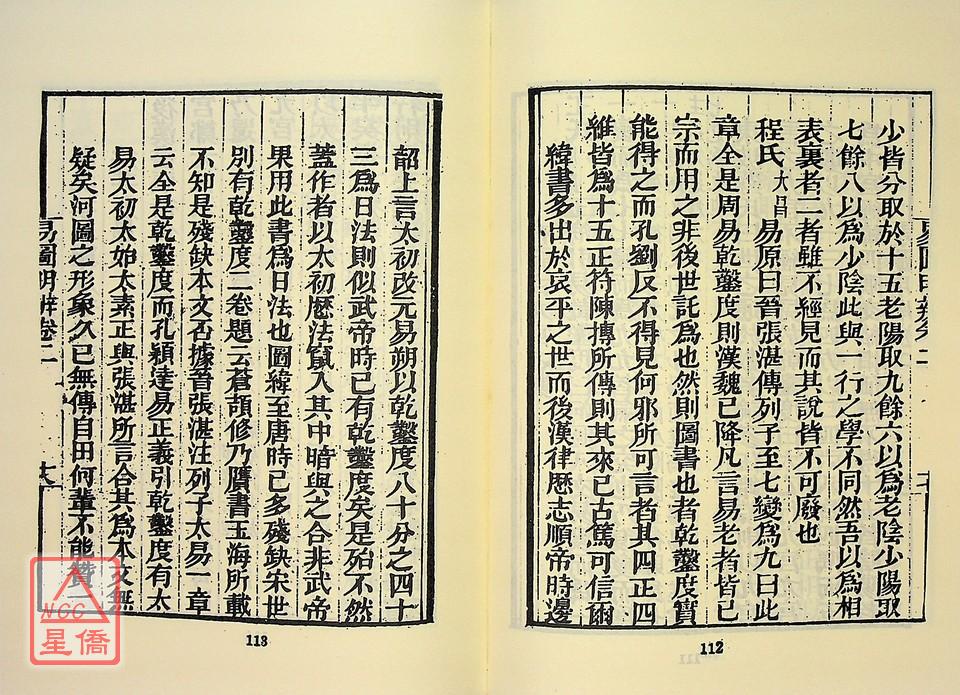 少皆分取於十五老陽取九餘六以爲老陰少陽取
七餘八以爲少陰此與一行之學不同然吾以爲相
表裏者二者雖不經見而其說皆不可廢也
程氏大昌易原曰晉張湛傳列子至七變爲九曰此
章全是周易乾鑿度則漢魏已降凡言易老者皆已
宗而用之非後世託爲也然則圖書也者乾鑿度實
能得之而孔劉反不得見何邪所可言者其四正四
維皆爲十五正符陳摶所傳則其來已古篤可信爾
緯書多出於哀平之世而後漢律歷志順帝時邊
112
韶上言太初改元易朔以乾鑿度八十分之四十
三爲日法則似武帝時已有乾鑿度矣是殆不然
蓋作者以太初歷法竄入其中暗與之合非武帝
果用此書爲日法也圖緯至唐時已多殘缺宋世
別有乾鑿度二卷題云蒼頡修乃贋書玉海所載
不知是殘缺本文否據晉張湛注列子太易一章
云全是乾鑿度而孔穎達易正義引乾鑿度有太
易太初太始太素正與張湛所言合其爲本文無
疑矣河圖之形象久已無傳自田何輩不能贊一
易圖明辨卷二
113
NCC
星僑